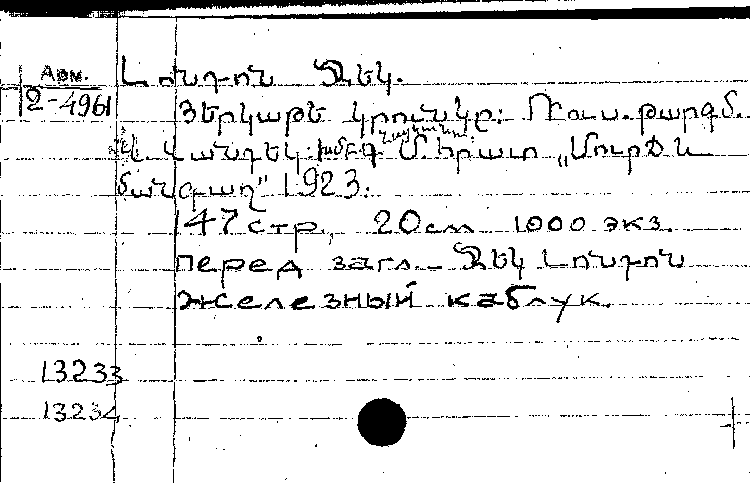 Арм.
2-4961
Լոնդոն Ջեկ.
Յերկաթե կրունկը: Ռուս. թարգմ.
Վանդեկ. խմբգ Մ. Երատ „Մուրճ և
մանգաղ" 1923.
147 стр., 20см 1000 экз.
перед загл. — Ջեկ Լոնդոն
железный каблук.
13233
13234